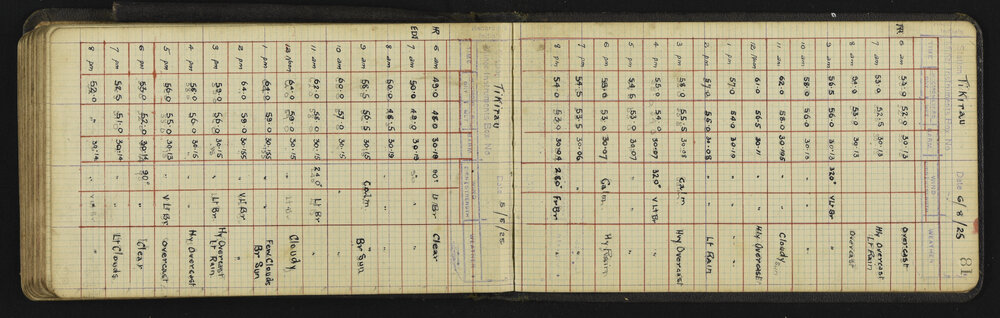 Tikirau
Date 5/8/25
HR 6 am 49.0 48.0 30.18 80° Lt Br Clear
EDI 7 am 50.0 49.0 30.19 " "
8 am 50.0 48.5 30.19 " "
9 am 58.5 56.5 30.15 Calm Br Sun
10 am 60.0 57.0 30.15 "
11 am 62.0 58.0 30.15 240° Lt Br
12 Noon 64.0 59.0 30.15 " Lt Br Cloudy
1 pm 64.0 59.0 30.155 " " Few Clouds Br Sun
2 pm 64.0 58.0 30.155 " V Lt Br "
3 pm 59.0 56.0 30.15 " Lt Br Hy Overcast Lt Rain
4 pm 58.0 56.0 30.15 " " Hy Overcast
5 pm 56.0 55.0 30.13 " V Lt Br Overcast
6 pm 53.0 52.0 30.14 90° " Clear
7 pm 52.5 51.0 30.14 " " Lt Clouds
8 pm 52.0 " 30.14 " V Lt Br "
81
Station Tikirau
Date 6/8/25
TIME WIND WEATHER
6 am 53.0 52.0 30.13 " " Overcast
7 am 53.0 52.5 30.13 " " Hy Overcast Lt Rain
8 am 54.0 53.0 30.13 " " Overcast
9 am 56.5 56.0 30.13 320° V Lt Br "
10 am 58.0 56.0 30.13 " " "
11 am 62.0 58.0 30.105 " " Cloudy
12 Noon 61.0 56.5 30.11 " " Hvy Overcast
1 pm 57.0 54.0 30.10 " " "
2 pm 57.0 55.0 30.08 " " Lt Rain
3 pm 58.0 55.5 30.08 Calm Hvy Overcast
4 pm 55.0 54.0 30.07 320° V Lt Br "
5 pm 54.5 53.0 30.07 " " "
6 pm 53.0 53.0 30.07 Calm Hy Rain
7 pm 54.5 53.5 30.06 " "
8 pm 54.0 53.0 30.04 280° Fr Br "